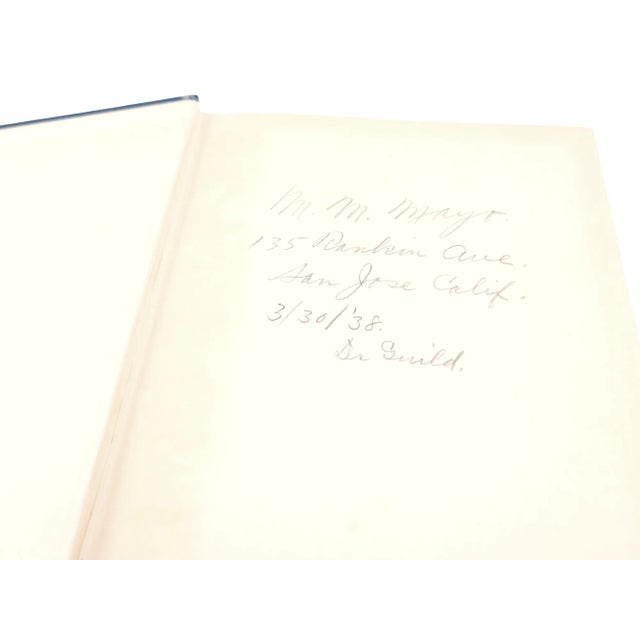 M. M. Mayo.
135 Rankin Ave.
San Jose Calif.
3/30/'38.
Dr Guild.